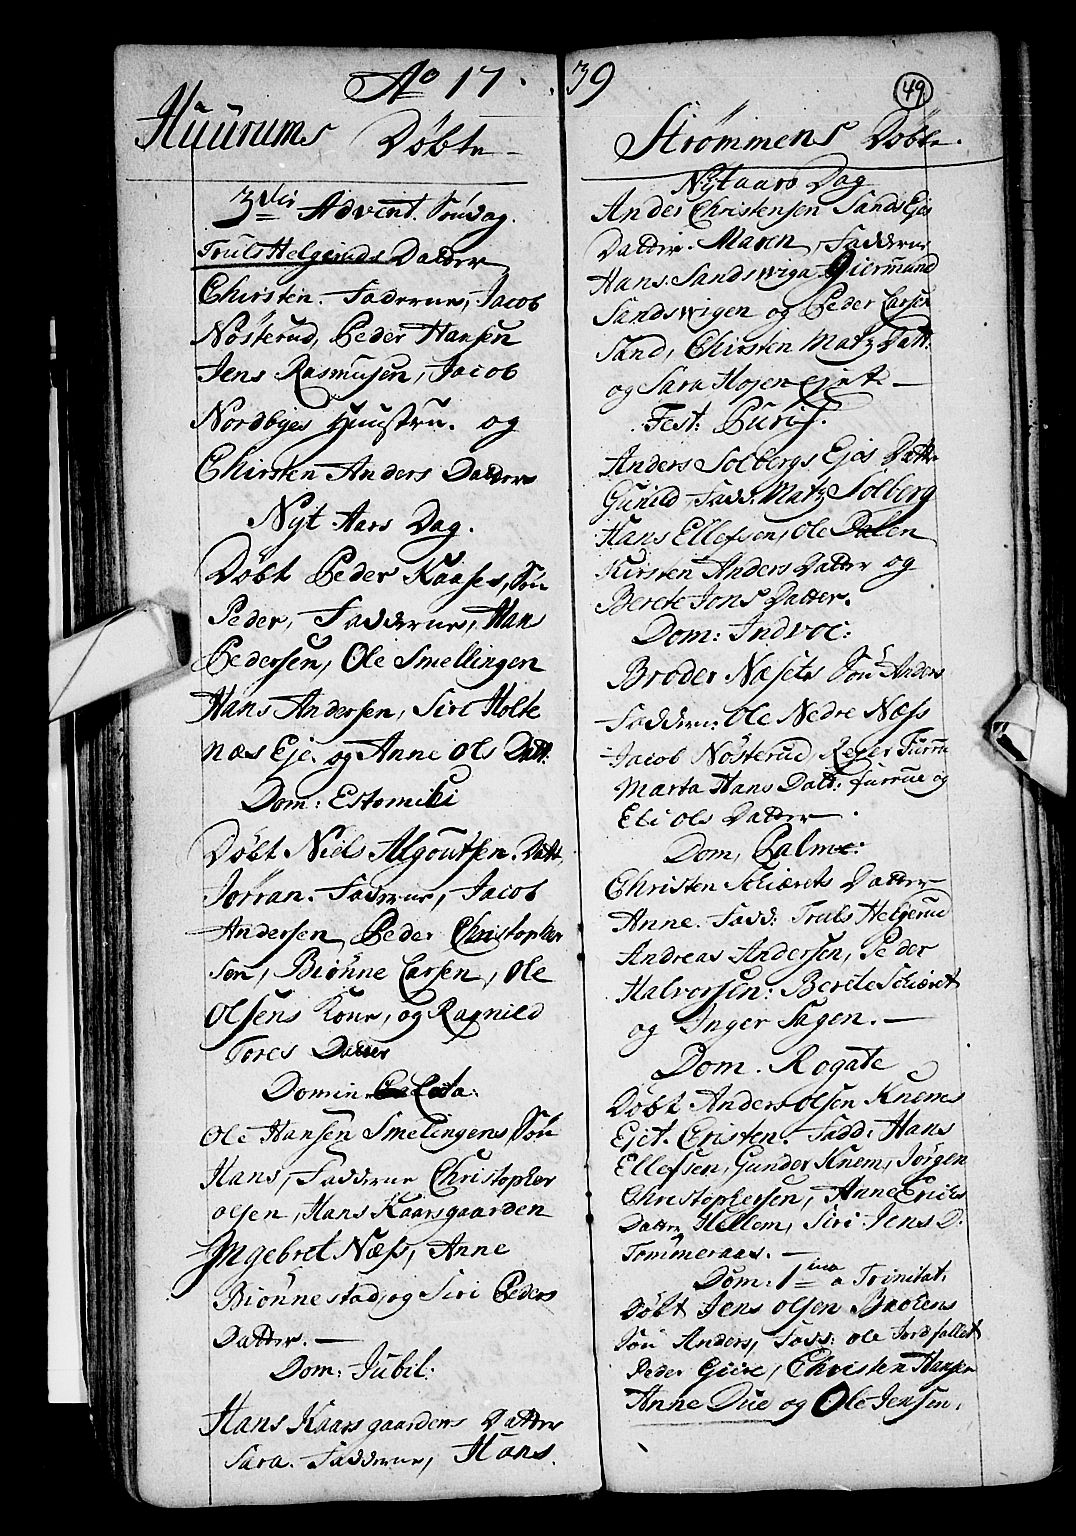 Ao 17 39
49
Huurums Døbte
3die Advent Søndag.
Truls Helgeruds Datter
Chirsten. Faderne, Jacob
Nösterud, Peder Hansen
Jens Rasmusen, Jacob
Nordbyes Huustru. og
Chirsten Anders Datter
Nyt Aars Dag.
Døbt Peder Kaases, Søn
Peder, Fadderne, Hans
Pedersen, Ole Smellingen
Hans Andersen, Siri Holte
næs Eje. og Anne Ols Datt:
Dom: Estomihi
Døbt Niels Algoutsen. Datt,
Jorran. Fadderne, Jacob
Andersen Peder Christopher
sen, Biønne Larsen, Ole
Olsens Kone, og Ragnild
Tores Datter
Domin Læta:
Ole Hansen Smelingens Søn
Hans, Fadderne Christopher
olsen, Hans Kaarsgaarden
Ingebret Næss, Anne
Biønnestad, og Siri Peders
Datter. —
Dom: Jubil:
Hans Kaarsgaardens Datter
Sara. Fadderne, Hans.
Strømmens Døbte.
Nyt aars Dag
Anders Christensen Sands Ejes
Datter. Maren, Fadderne
Hans Sandswiga Giermund
Sandswigen og Peder Larsen
Sand, Chirsten Matz Datt:
og Sara Hojen ejet. —
Fest: Purif.
Anders Solbergs Ejes Datter
Gunild, Fadd: Matz Solberg
Hans Ellefsen, Ole Dalen
Kirsten Anders Datter og
Berete Jons Datter.
Dom: Invoc:
Broder Næsets Søn Anders
Fadderne: Ole Nedre Næss
Jacob Nösterud Reyer Furrue
Marta Hans Datt: furrue og
Eli Ols Datter.
Dom, Palme:
Christen Schiærets Datter
Anne. Fadd: Truls Helgerud
Andreas Andersen, Peder
Halvorsen: Berete Schiæret
og Inger Sagen. —
Dom. Rogate
Døbt Anders olsen Knems
Ejet. Cristen. Fadd: Hans
Ellefsen, Gunder Knem, Jørgen
Christophersen, Anne Erichs
Datter Hellem, Siri Jens D.
Tommeraas. —
Dom: 1ma a Trinitat.
Døbt Jens olsen Bratens
Søn Anders, Fadd: ole Jordfallet
Peder Christen Hansen
Anne Due og Ole Jensen.